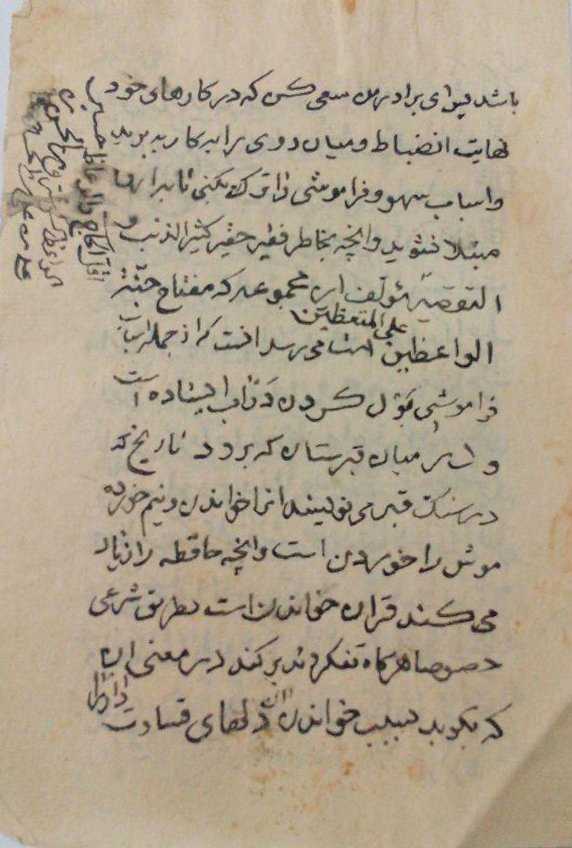 باشد پس ای برادر من سعی کن که در کارهای خود
نهایت انضباط و میان روی را بر کار بری
و اسباب سهو و فراموشی را ترک بکنی تا بر آنها
مبتلا نشوید و آنچه بخاطر فقیر حقیر کثیر الذنب و
التقصیر مؤلف این مجموعه که مفتاح جنّة
علی المتعظین
الواعظین است می رسد اینست که از جمله اسباب
فراموشی بول کردن در آب ایستاده است
و در میان قبرستان که برود تاریخ که
در سنگ قبر می نویسند انرا خواندن و نیم خورده
موش را خوردن است و آنچه حافظه را زیاد
می کند قران خواندن است بطریق شرعی
خصوصا هرگاه تفکر و تدبر کند در معنی ان
که بگوید بسبب خواندن ان دلهای قساوت دار